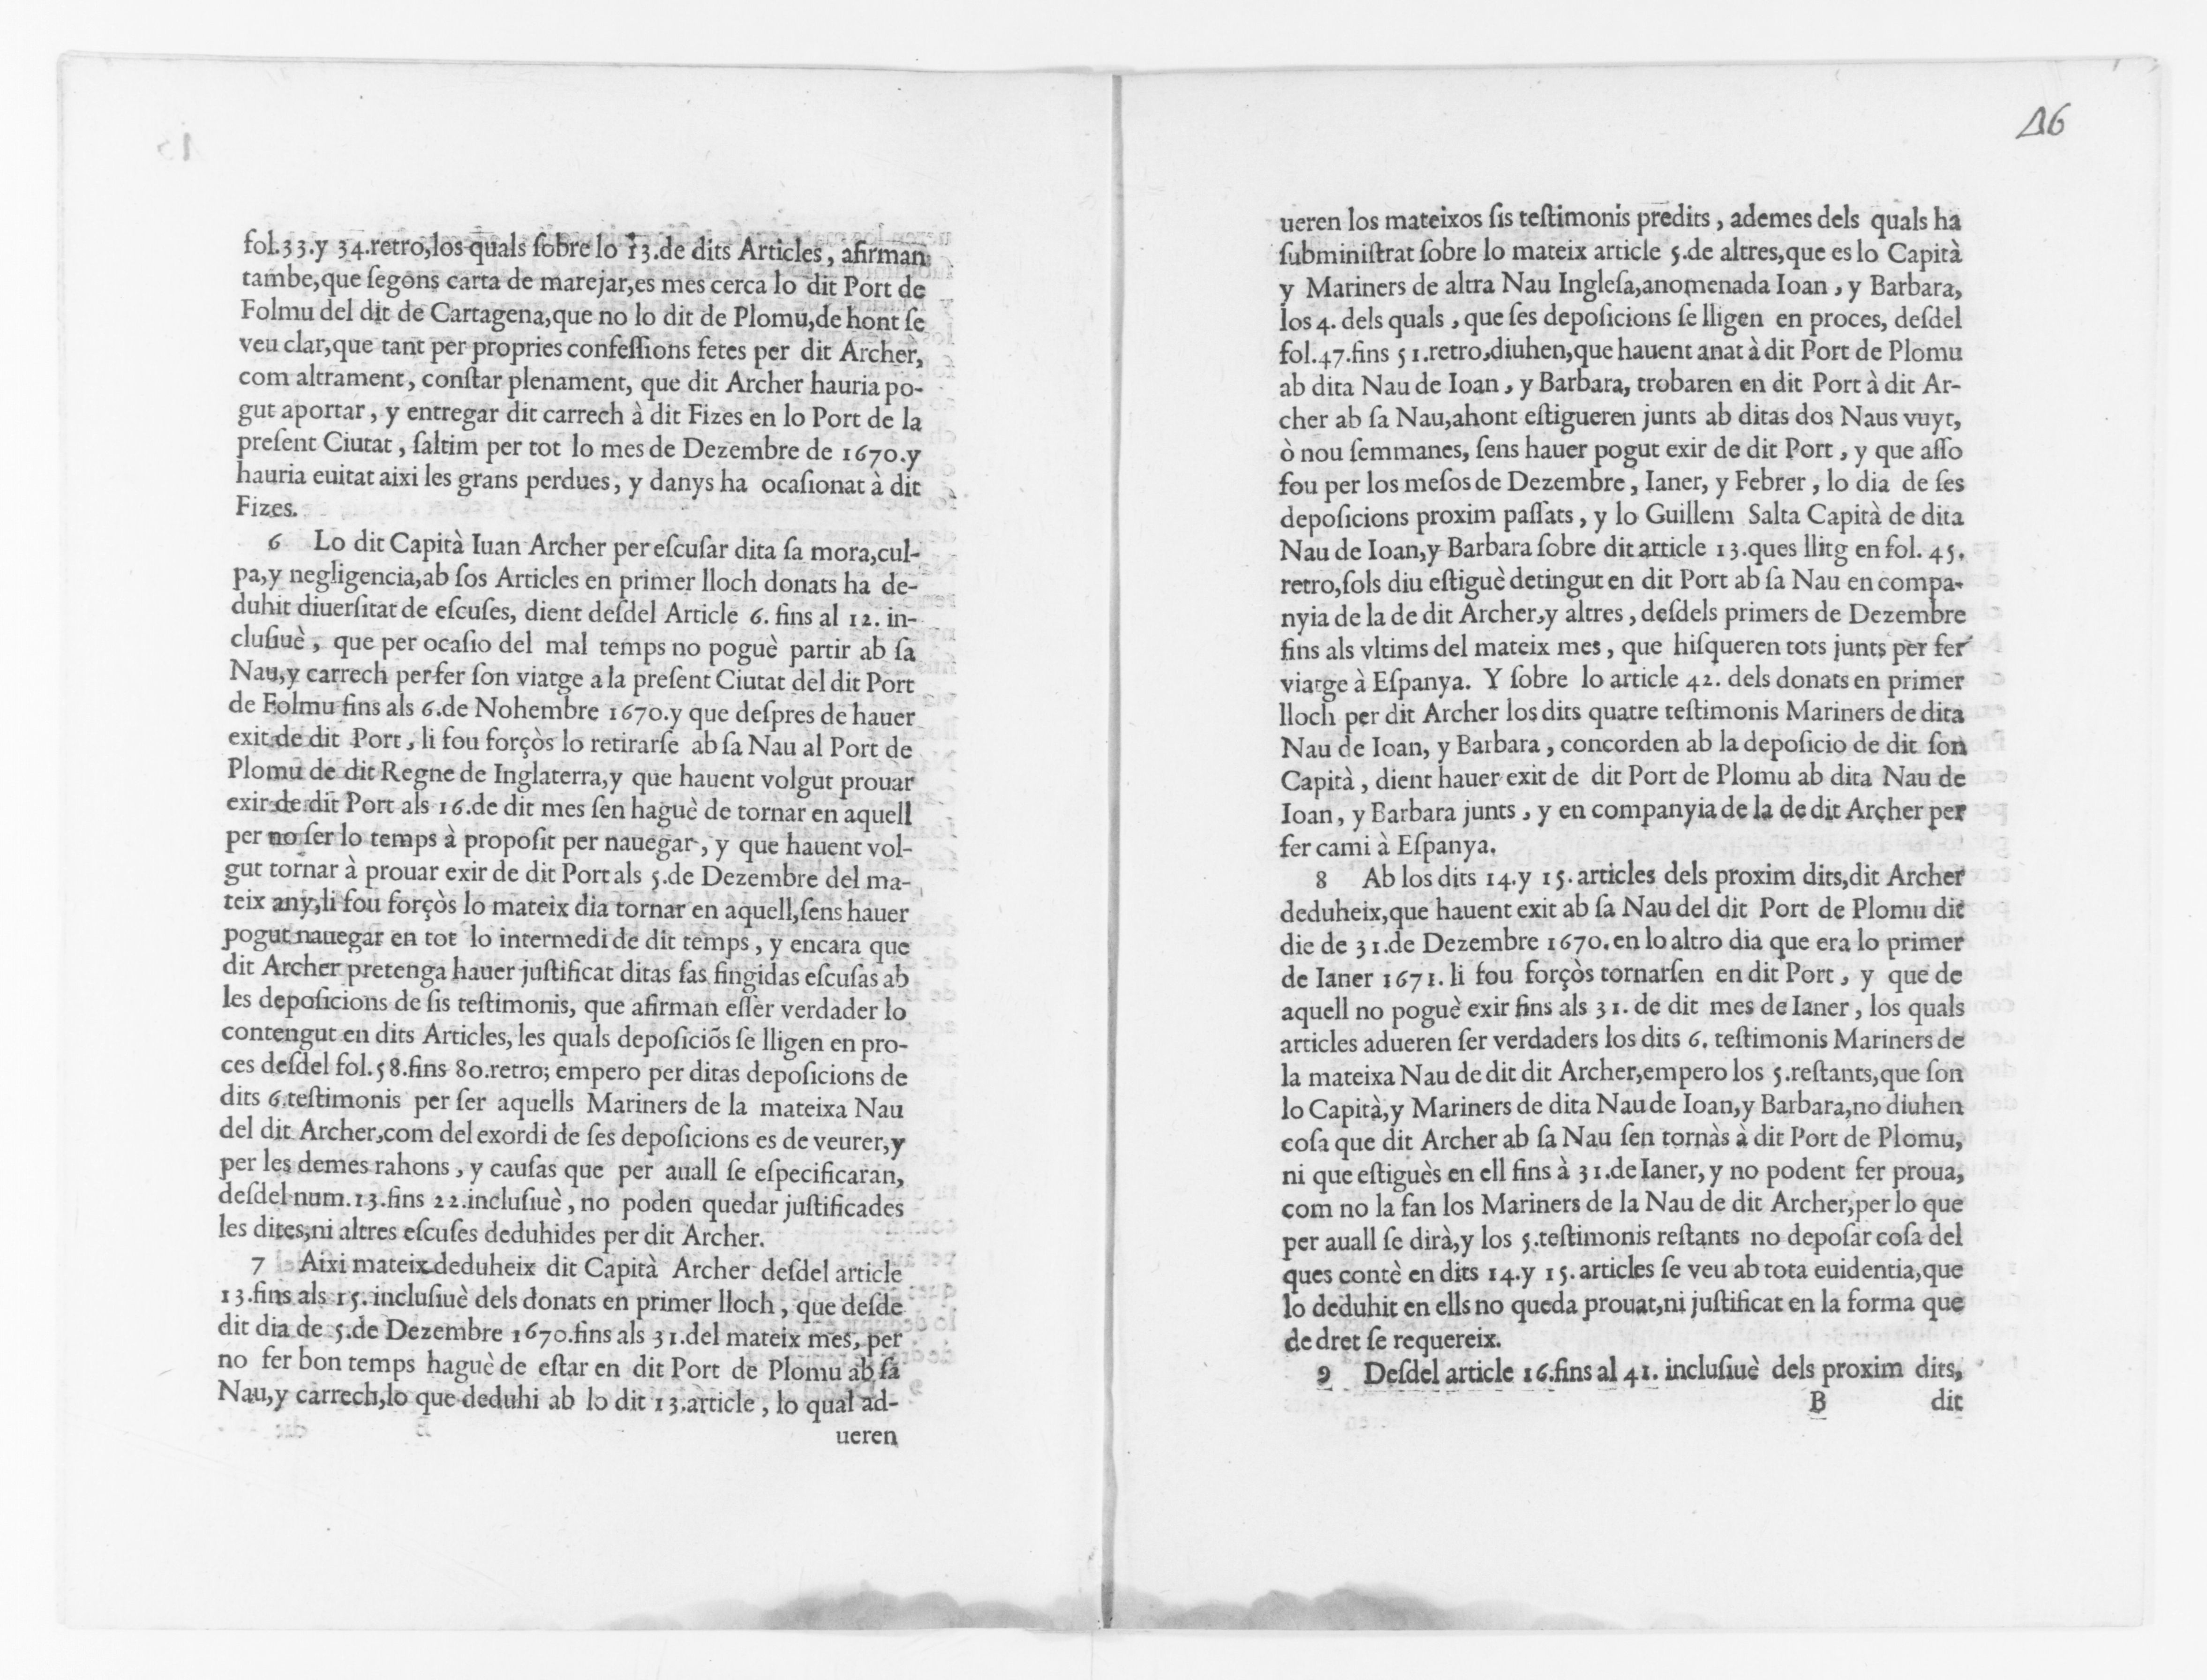 fol.33.y 34.retro,los quals ſobre lo 13.de dits Articles, afirman
tambe,que ſegons carta de marejar,es mes cerca lo dit Port de
Folmu del dit de Cartagena,que no lo dit de Plomu,de hont ſe
veu clar,que tant per propries confeſſions fetes per dit Archer,
com altrament, conſtar plenament, que dit Archer hauria po-
gut aportar, y entregar dit carrech à dit Fizes en lo Port de la
preſent Ciutat, ſaltim per tot lo mes de Dezembre de 1670.y
hauria euitat aixi les grans perdues, y danys ha ocaſionat à dit
Fizes.
6 Lo dit Capità Iuan Archer per eſcuſar dita ſa mora,cul-
pa,y negligencia,ab ſos Articles en primer lloch donats ha de-
duhit diuerſitat de eſcuſes, dient deſdel Article 6. fins al 12. in-
cluſiuè, que per ocaſio del mal temps no poguè partir ab ſa
Nau,y carrech per fer ſon viatge a la preſent Ciutat del dit Port
de Folmu fins als 6.de Nohembre 1670.y que deſpres de hauer
exit de dit Port, li fou forçòs lo retirarſe ab ſa Nau al Port de
Plomu de dit Regne de Inglaterra,y que hauent volgut prouar
exir de dit Port als 16.de dit mes ſen haguè de tornar en aquell
per no ſer lo temps à propoſit per nauegar, y que hauent vol-
gut tornar à prouar exir de dit Port als 5.de Dezembre del ma-
teix any,li fou forçòs lo mateix dia tornar en aquell,ſens hauer
pogut nauegar en tot lo intermedi de dit temps, y encara que
dit Archer pretenga hauer juſtificat ditas ſas fingidas eſcuſas ab
les depoſicions de ſis teſtimonis, que afirman eſſer verdader lo
contengut en dits Articles, les quals depoſiciõs ſe lligen en pro-
ces deſdel fol.58.fins 80.retro; empero per ditas depoſicions de
dits 6.teſtimonis per ſer aquells Mariners de la mateixa Nau
del dit Archer,com del exordi de ſes depoſicions es de veurer,y
per les demes rahons, y cauſas que per auall ſe eſpecificaran,
deſdel num.13.fins 22.incluſiuè, no poden quedar juſtificades
les dites,ni altres eſcuſes deduhides per dit Archer.
7 Aixi mateix deduheix dit Capità Archer deſdel article
13.fins als 15.incluſiuè dels donats en primer lloch, que deſde
dit dia de 5.de Dezembre 1670.fins als 31.del mateix mes, per
no fer bon temps haguè de eſtar en dit Port de Plomu ab ſa
Nau,y carrech,lo que deduhi ab lo dit 13.article, lo qual ad-
ueren
46
ueren los mateixos ſis teſtimonis predits, ademes dels quals ha
ſubminiſtrat ſobre lo mateix article 5.de altres,que es lo Capità
y Mariners de altra Nau Ingleſa,anomenada Ioan, y Barbara,
los 4. dels quals, que ſes depoſicions ſe lligen en proces, deſdel
fol.47.fins 51.retro,diuhen,que hauent anat à dit Port de Plomu
ab dita Nau de Ioan, y Barbara, trobaren en dit Port à dit Ar-
cher ab ſa Nau,ahont eſtigueren junts ab ditas dos Naus vuyt,
ò nou ſemmanes, ſens hauer pogut exir de dit Port, y que aſſo
fou per los meſos de Dezembre, Ianer, y Febrer, lo dia de ſes
depoſicions proxim paſſats, y lo Guillem Salta Capità de dita
Nau de Ioan,y Barbara ſobre dit article 13.ques llitg en fol. 45.
retro,ſols diu eſtiguè detingut en dit Port ab ſa Nau en compa-
nyia de la de dit Archer,y altres, deſdels primers de Dezembre
fins als vltims del mateix mes, que hiſqueren tots junts per fer
viatge à Eſpanya. Y ſobre lo article 42. dels donats en primer
lloch per dit Archer los dits quatre teſtimonis Mariners de dita
Nau de Ioan, y Barbara, concorden ab la depoſicio de dit ſon
Capità, dient hauer exit de dit Port de Plomu ab dita Nau de
Ioan, y Barbara junts, y en companyia de la de dit Archer per
fer cami à Eſpanya.
8 Ab los dits 14.y 15.articles dels proxim dits,dit Archer
deduheix,que hauent exit ab ſa Nau del dit Port de Plomu dit
die de 31.de Dezembre 1670.en lo altro dia que era lo primer
de Ianer 1671. li fou forçòs tornarſen en dit Port, y que de
aquell no poguè exir fins als 31. de dit mes de Ianer, los quals
articles adueren ſer verdaders los dits 6. teſtimonis Mariners de
la mateixa Nau de dit dit Archer,empero los 5.reſtants,que ſon
lo Capità,y Mariners de dita Nau de Ioan,y Barbara,no diuhen
coſa que dit Archer ab ſa Nau ſen tornàs à dit Port de Plomu,
ni que eſtiguès en ell fins à 31.de Ianer, y no podent fer proua,
com no la fan los Mariners de la Nau de dit Archer,per lo que
per auall ſe dirà,y los 5.teſtimonis reſtants no depoſar coſa del
ques contè en dits 14.y 15.articles ſe veu ab tota euidentia,que
lo deduhit en ells no queda prouat,ni juſtificat en la forma que
de dret ſe requereix.
9 Deſdel article 16.fins al 41. incluſiuè dels proxim dits,
B dit